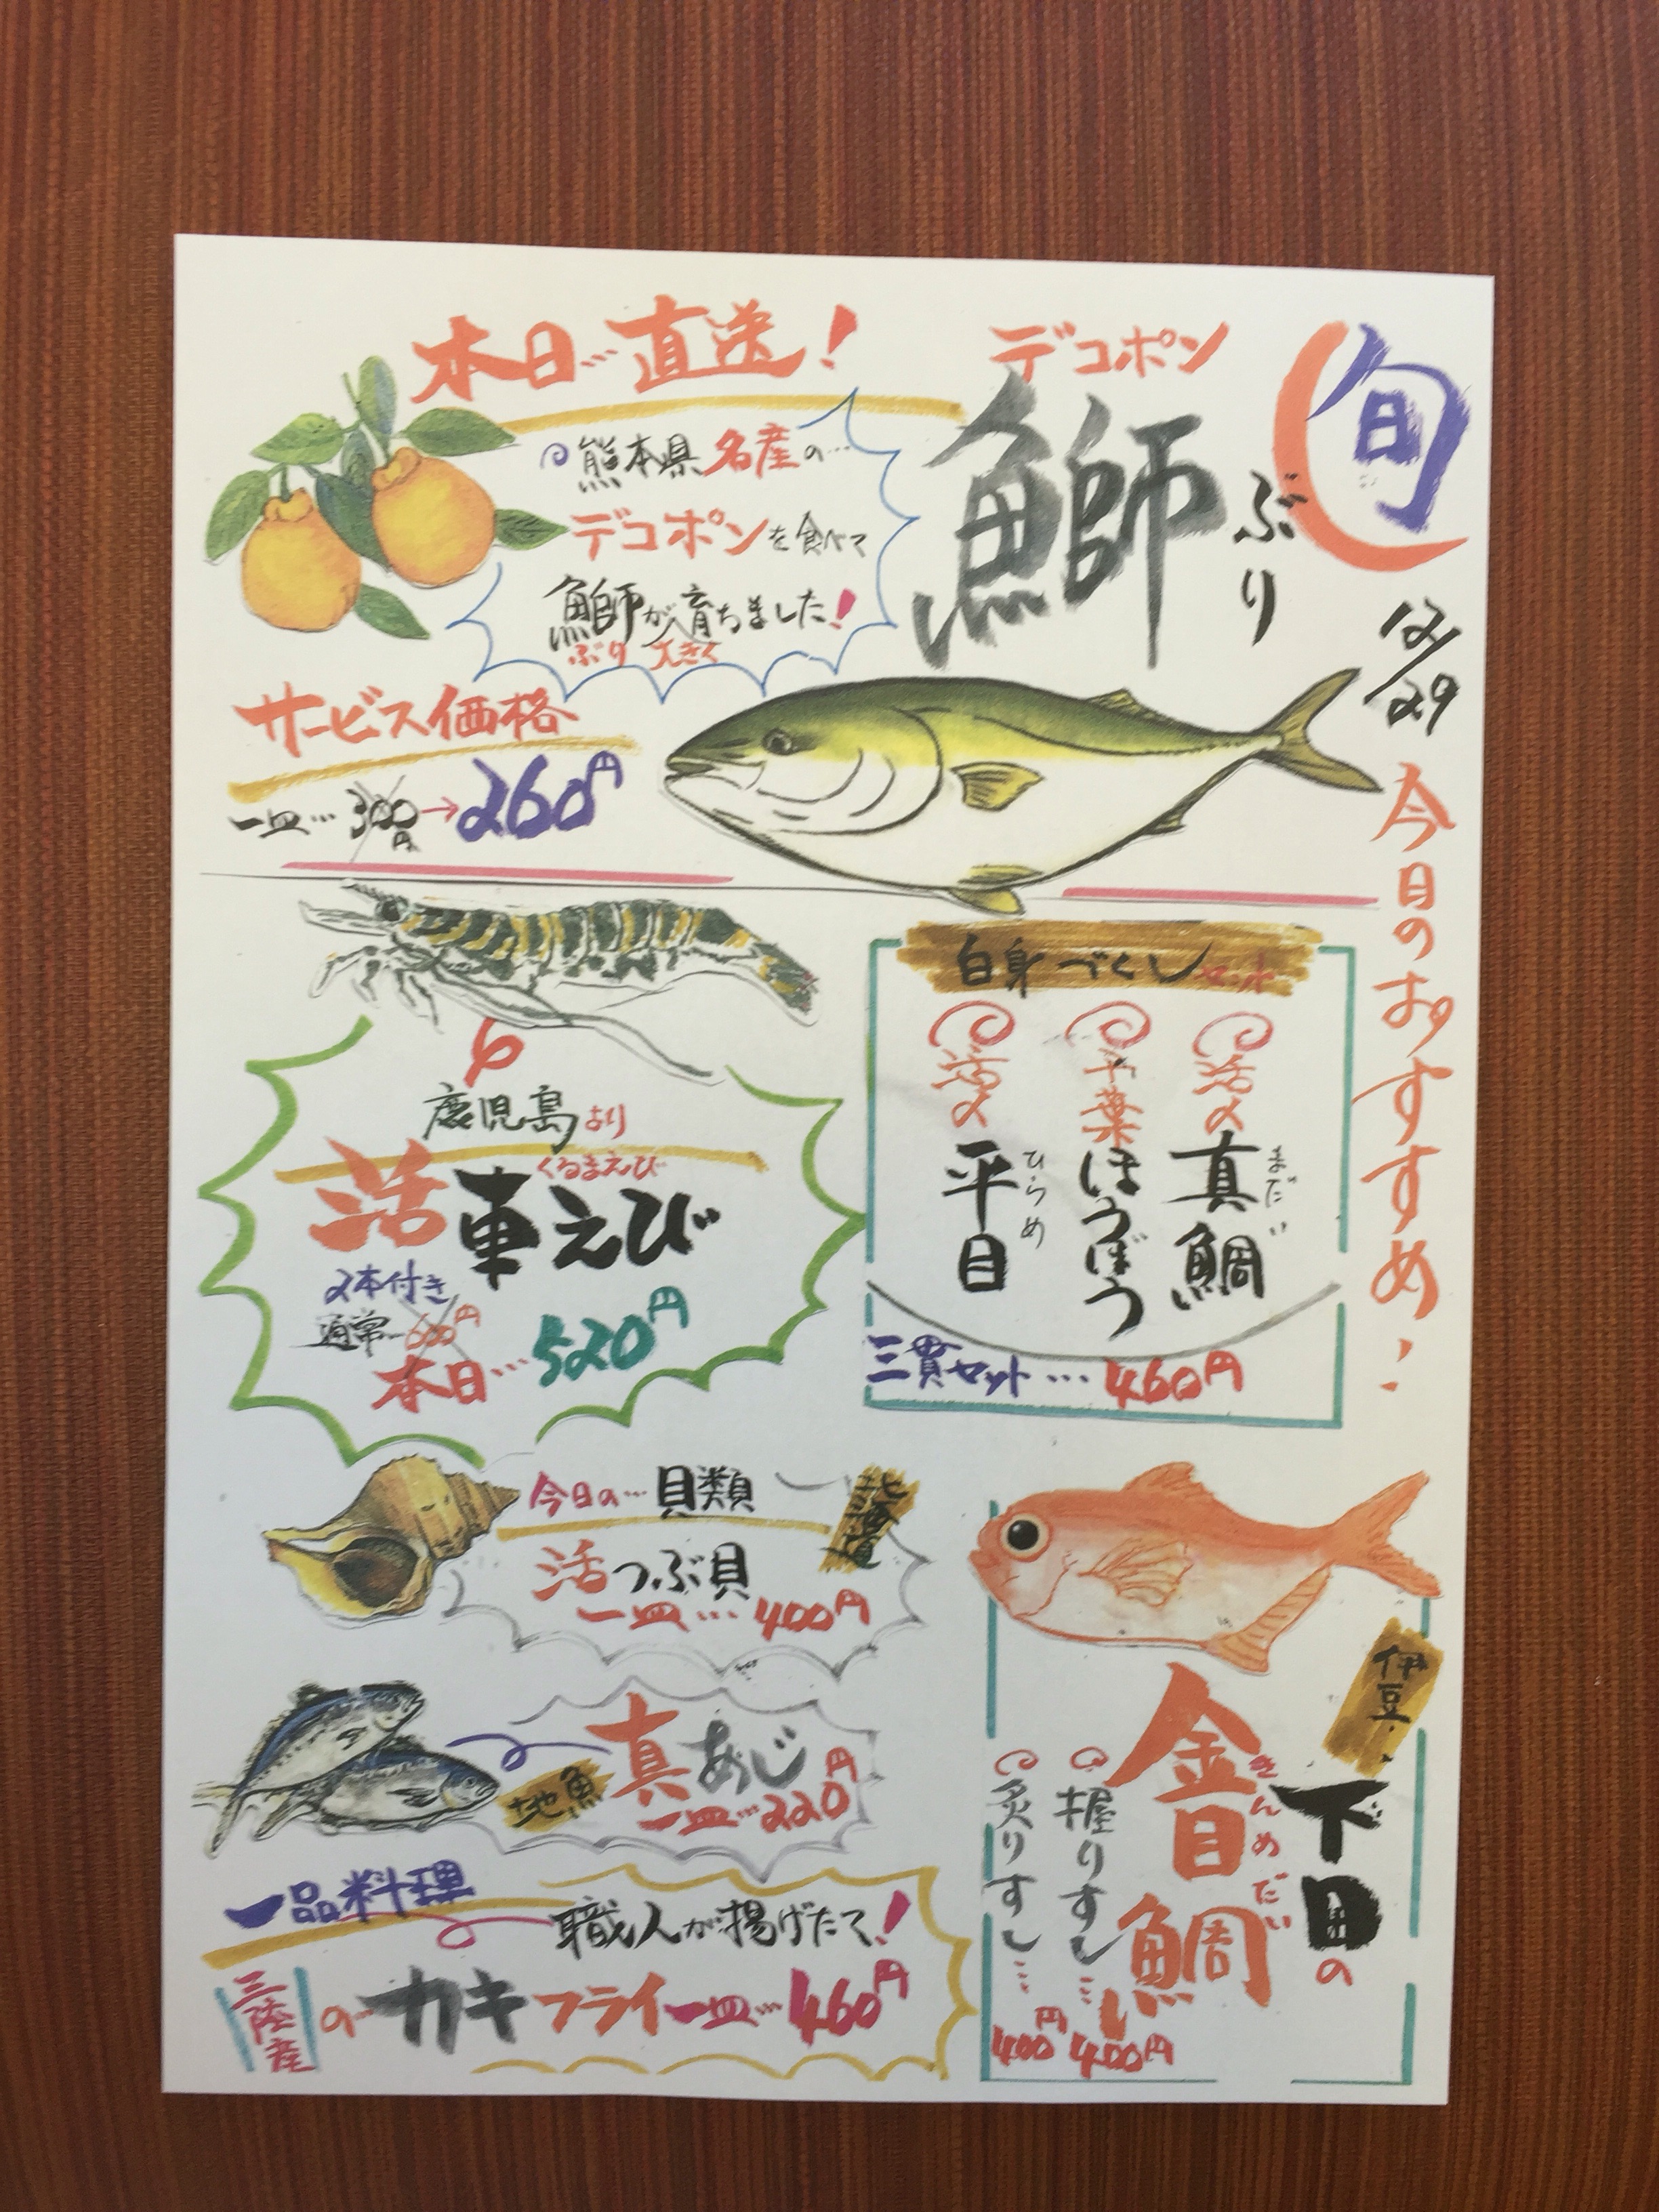 旬
12/29
今日のおすすめ・・
デコポン
鰤
ぶり
本日…直送！
熊本県名産の…
デコポンを食べて
鰤が育ちました！
ぶり 大きく
サービス価格
一皿…300円→260円
白身づくしセット
活〆真鯛
まだい
千葉ほうぼう
活〆平目
ひらめ
三貫セット…460円
鹿児島より
くるまえび
活車えび
2本付き
通常600円
本日…520円
今日の…貝類
北海道
活つぶ貝
一皿…400円
伊豆
下田の
金目鯛
きんめだい
握りすし…400円
炙りすし…400円
地魚
真あじ
一皿…220円
一品料理
職人が揚げたて！
三陸産のカキフライ一皿…460円